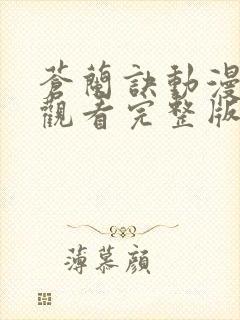 蒼蘭訣動漫
觀看完整版
薄慕顏